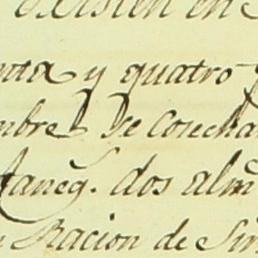 existen en
nta y quatro
mbre de Cosecha
faneg. dos alm
Racion de